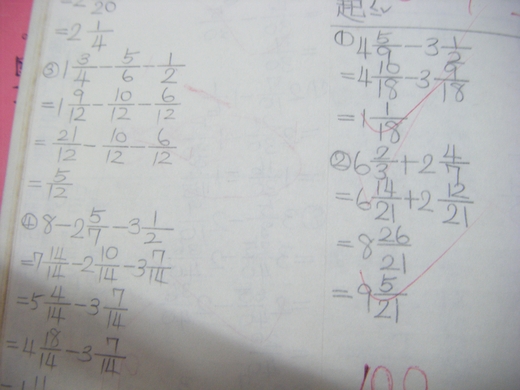 = 2 1/4
③ 1 3/4 - 5/6 - 1/2
= 1 9/12 - 10/12 - 6/12
= 21/12 - 10/12 - 6/12
= 5/12
④ 8 - 2 5/7 - 3 1/2
= 7 14/14 - 2 10/14 - 3 7/14
= 5 4/14 - 3 7/14
= 4 18/14 - 3 7/14
① 4 5/9 - 3 1/2
= 4 10/18 - 3 9/18
= 1 1/18
② 6 2/3 + 2 4/7
= 6 14/21 + 2 12/21
= 8 26/21
= 9 5/21
100